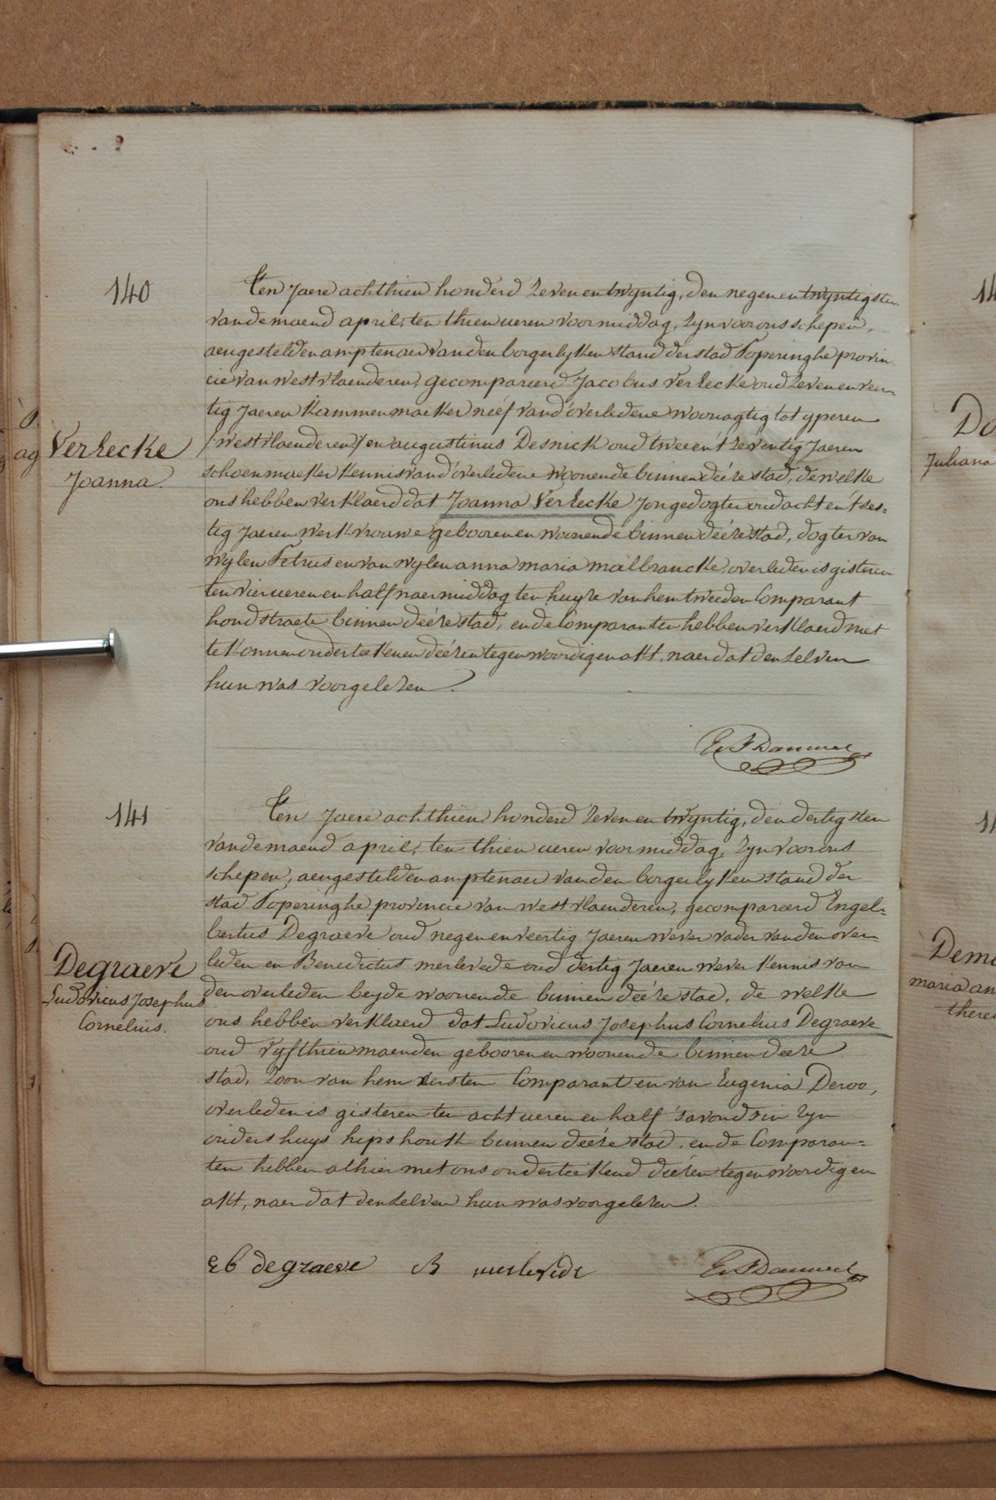 140
Ten Jaere achthien honderd zeven en twyntig, den negen en twyntigsten
van de maend april, ten thien ueren voormiddag, zyn voor ons schepen,
aengestelden amptenaer van den borgerlyken stand der stad Poperinghe provin
cie van westvlaenderen, gecompareerd Jacobus Verhecke oud zeven en veer
tig Jaeren kammenmaeker neéf van d'overledene woonagtig tot yperen
Verhecke
Joanna
(westvlaenderen) en augustinus Desnick oud twee en t'zeventig Jaeren
schoenmaeker kennis van d'overledene woonende binnen deéze stad, de welke
ons hebben verklaerd dat Joanna Verhecke Jongedogter oud acht en t'ses-
tig Jaeren werkvrouwe gebooren en woonende binnen deéze stad, dogter van
wylen Petrus en van wylen anna maria malbrancke overleden is gisteren
ten vier ueren en half naermiddag ten huyze van hem tweeden Comparant
hondstraete binnen deéze stad, en de Comparanten hebben verklaerd niet
te konnen onderteekenen deézen tegenwoordigen akt, naer dat den zelven
hun was voorgelezen.
141
Ten Jaere achthien honderd zeven en twyntig, den dertigsten
van de maend april, ten thien ueren voormiddag, zyn voor ons
schepen, aengestelden amptenaer van den borgerlyken stand der
stad Poperinghe provincie van westvlaenderen, gecompareerd Engel-
bertus Degraeve oud negen en veertig Jaeren wever vader van den over-
leden en Benedictus merlevede oud dertig Jaeren wever kennis van
Degraeve
Ludovicus Josephus
Cornelius.
den overleden beyde woonende binnen deéze stad, de welke
ons hebben verklaerd dat Ludovicus Josephus Cornelius Degraeve
oud vyfthien maenden gebooren en woonende binnen deéze
stad, zoon van hem eersten Comparant en van Eugenia Deroo,
overleden is gisteren ten acht ueren en half 's avonds in zyn
ouders huys hipshoek binnen deéze stad, en de Comparan-
ten hebben alhier met ons onderteekend deézen tegenwoordigen
akt, naer dat den zelven hun was voorgelezen.
degraeve B merlevede